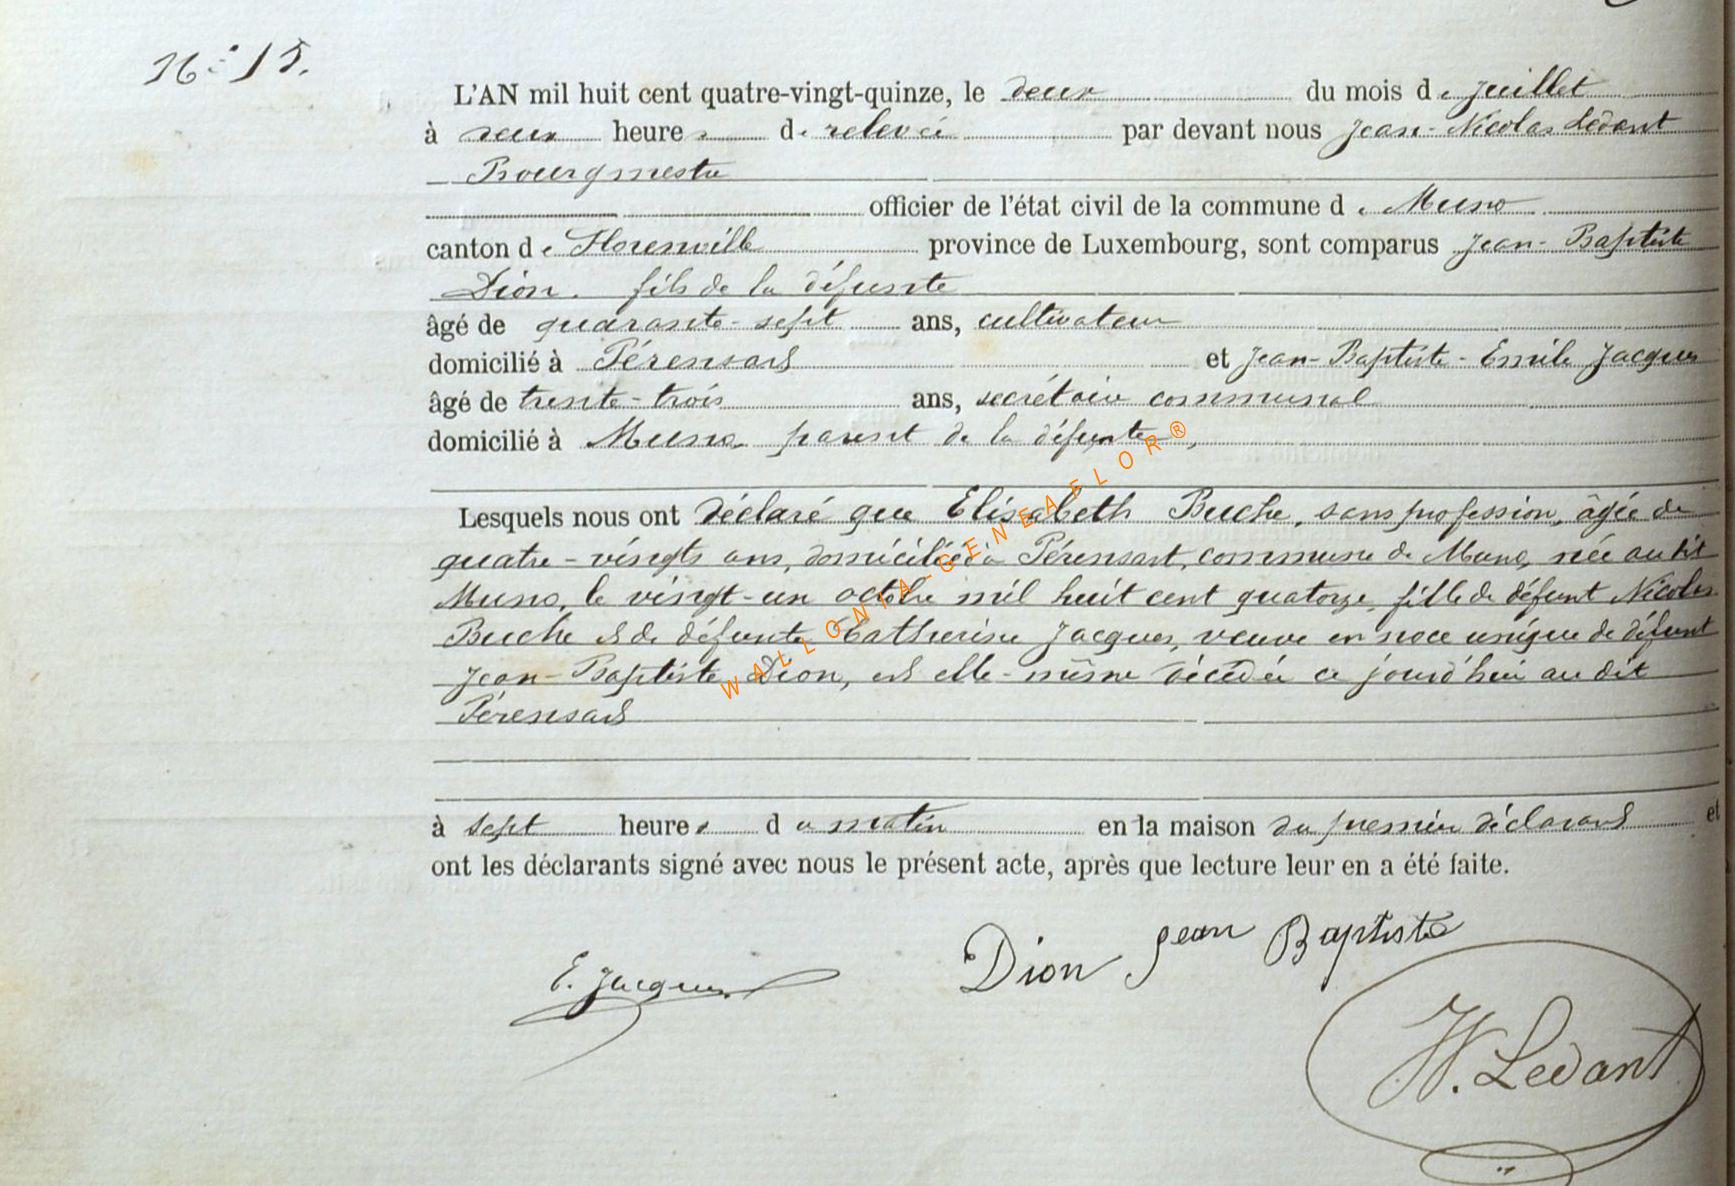 N° 15.
L'AN mil huit cent quatre-vingt-quinze, le deux du mois de Juillet
à deux heures de relevée par devant nous Jean-Nicolas Ledant
Bourgmestre
officier de l'état civil de la commune de Muno
canton de Florenville province de Luxembourg, sont comparus Jean-Baptiste
Dion. fils de la défunte
âgé de quarante-sept ans, cultivateur
domicilié à Pérensart et Jean-Baptiste-Emile Jacques
âgé de trente-trois ans, secrétaire communal
domicilié à Muno parent de la défunte,
Lesquels nous ont déclaré que Elisabeth Buche, sans profession, âgée de
quatre-vingts ans, domiciliée à Pérensart, commune de Muno, née au dit
Muno, le vingt-un octobre mil huit cent quatorze, fille de défunt Nicolas
Buche et de défunte Catherine Jacques, veuve en noce unique de défunt
Jean-Baptiste Dion, est elle-même décédée ce jourd'hui au dit
Pérensart
à sept heures du matin en la maison du premier déclarant et
ont les déclarants signé avec nous le présent acte, après que lecture leur en a été faite.
E. Jacques Dion Jean Baptiste
N. Ledant
WALLONIA-GENEAFLOR®